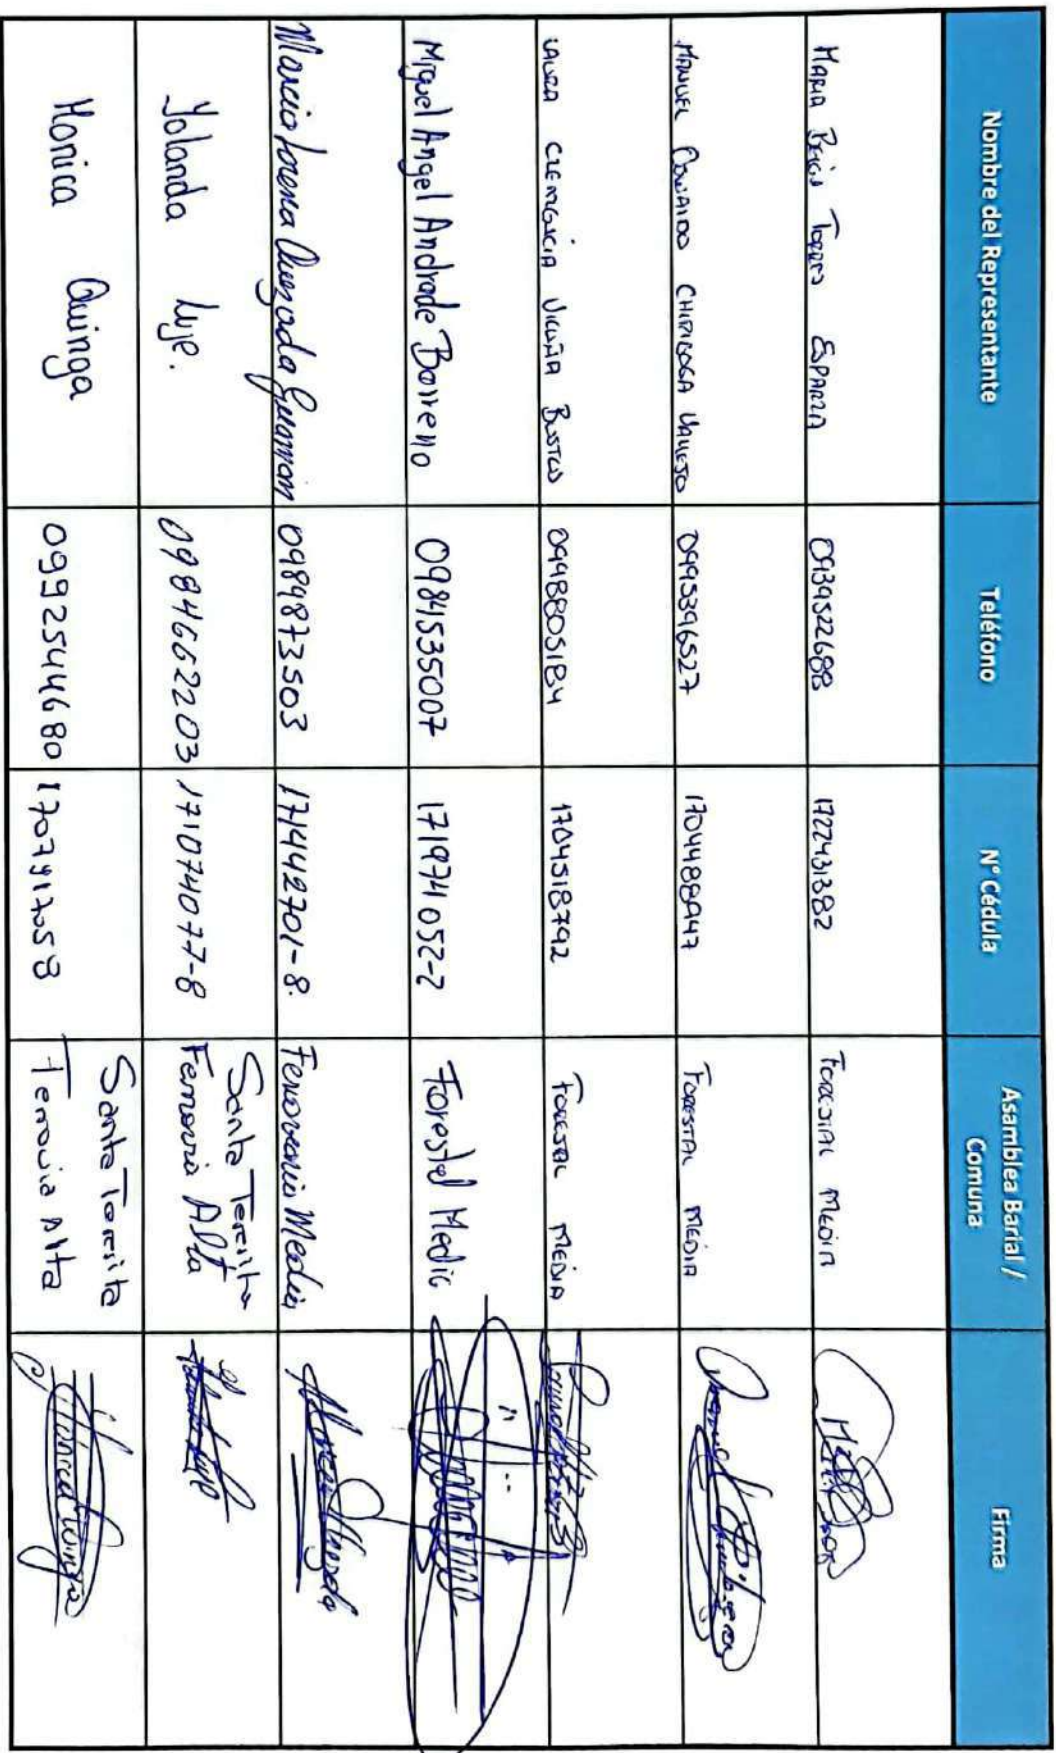 Nombre del Representante Teléfono N° Cédula Asamblea Barial / Comuna Firma
MARIA BELÉN TORRES ESPARZA 0939522688 1722431382 FORESTAL MEDIA
MANUEL OSWALDO CHIRIBOGA VALLEJO 0995396527 1704488947 FORESTAL MEDIA
LAURA CLEMENCIA VICUÑA BUSTOS 0998805184 1704518792 FORESTAL MEDIA
Miguel Angel Andrade Borreno 0984535007 171974052-2 Forestal Media
Marcia Lorena Quezada Guaman 0989873503 171442701-8. Ferroviaria Media
Yolanda Luje. 0984662203 171074077-8 Santa Teresita
Ferrovia Alta
Monica Quinga 0992544680 1707917058 Santa Teresita
Ferrovia Alta